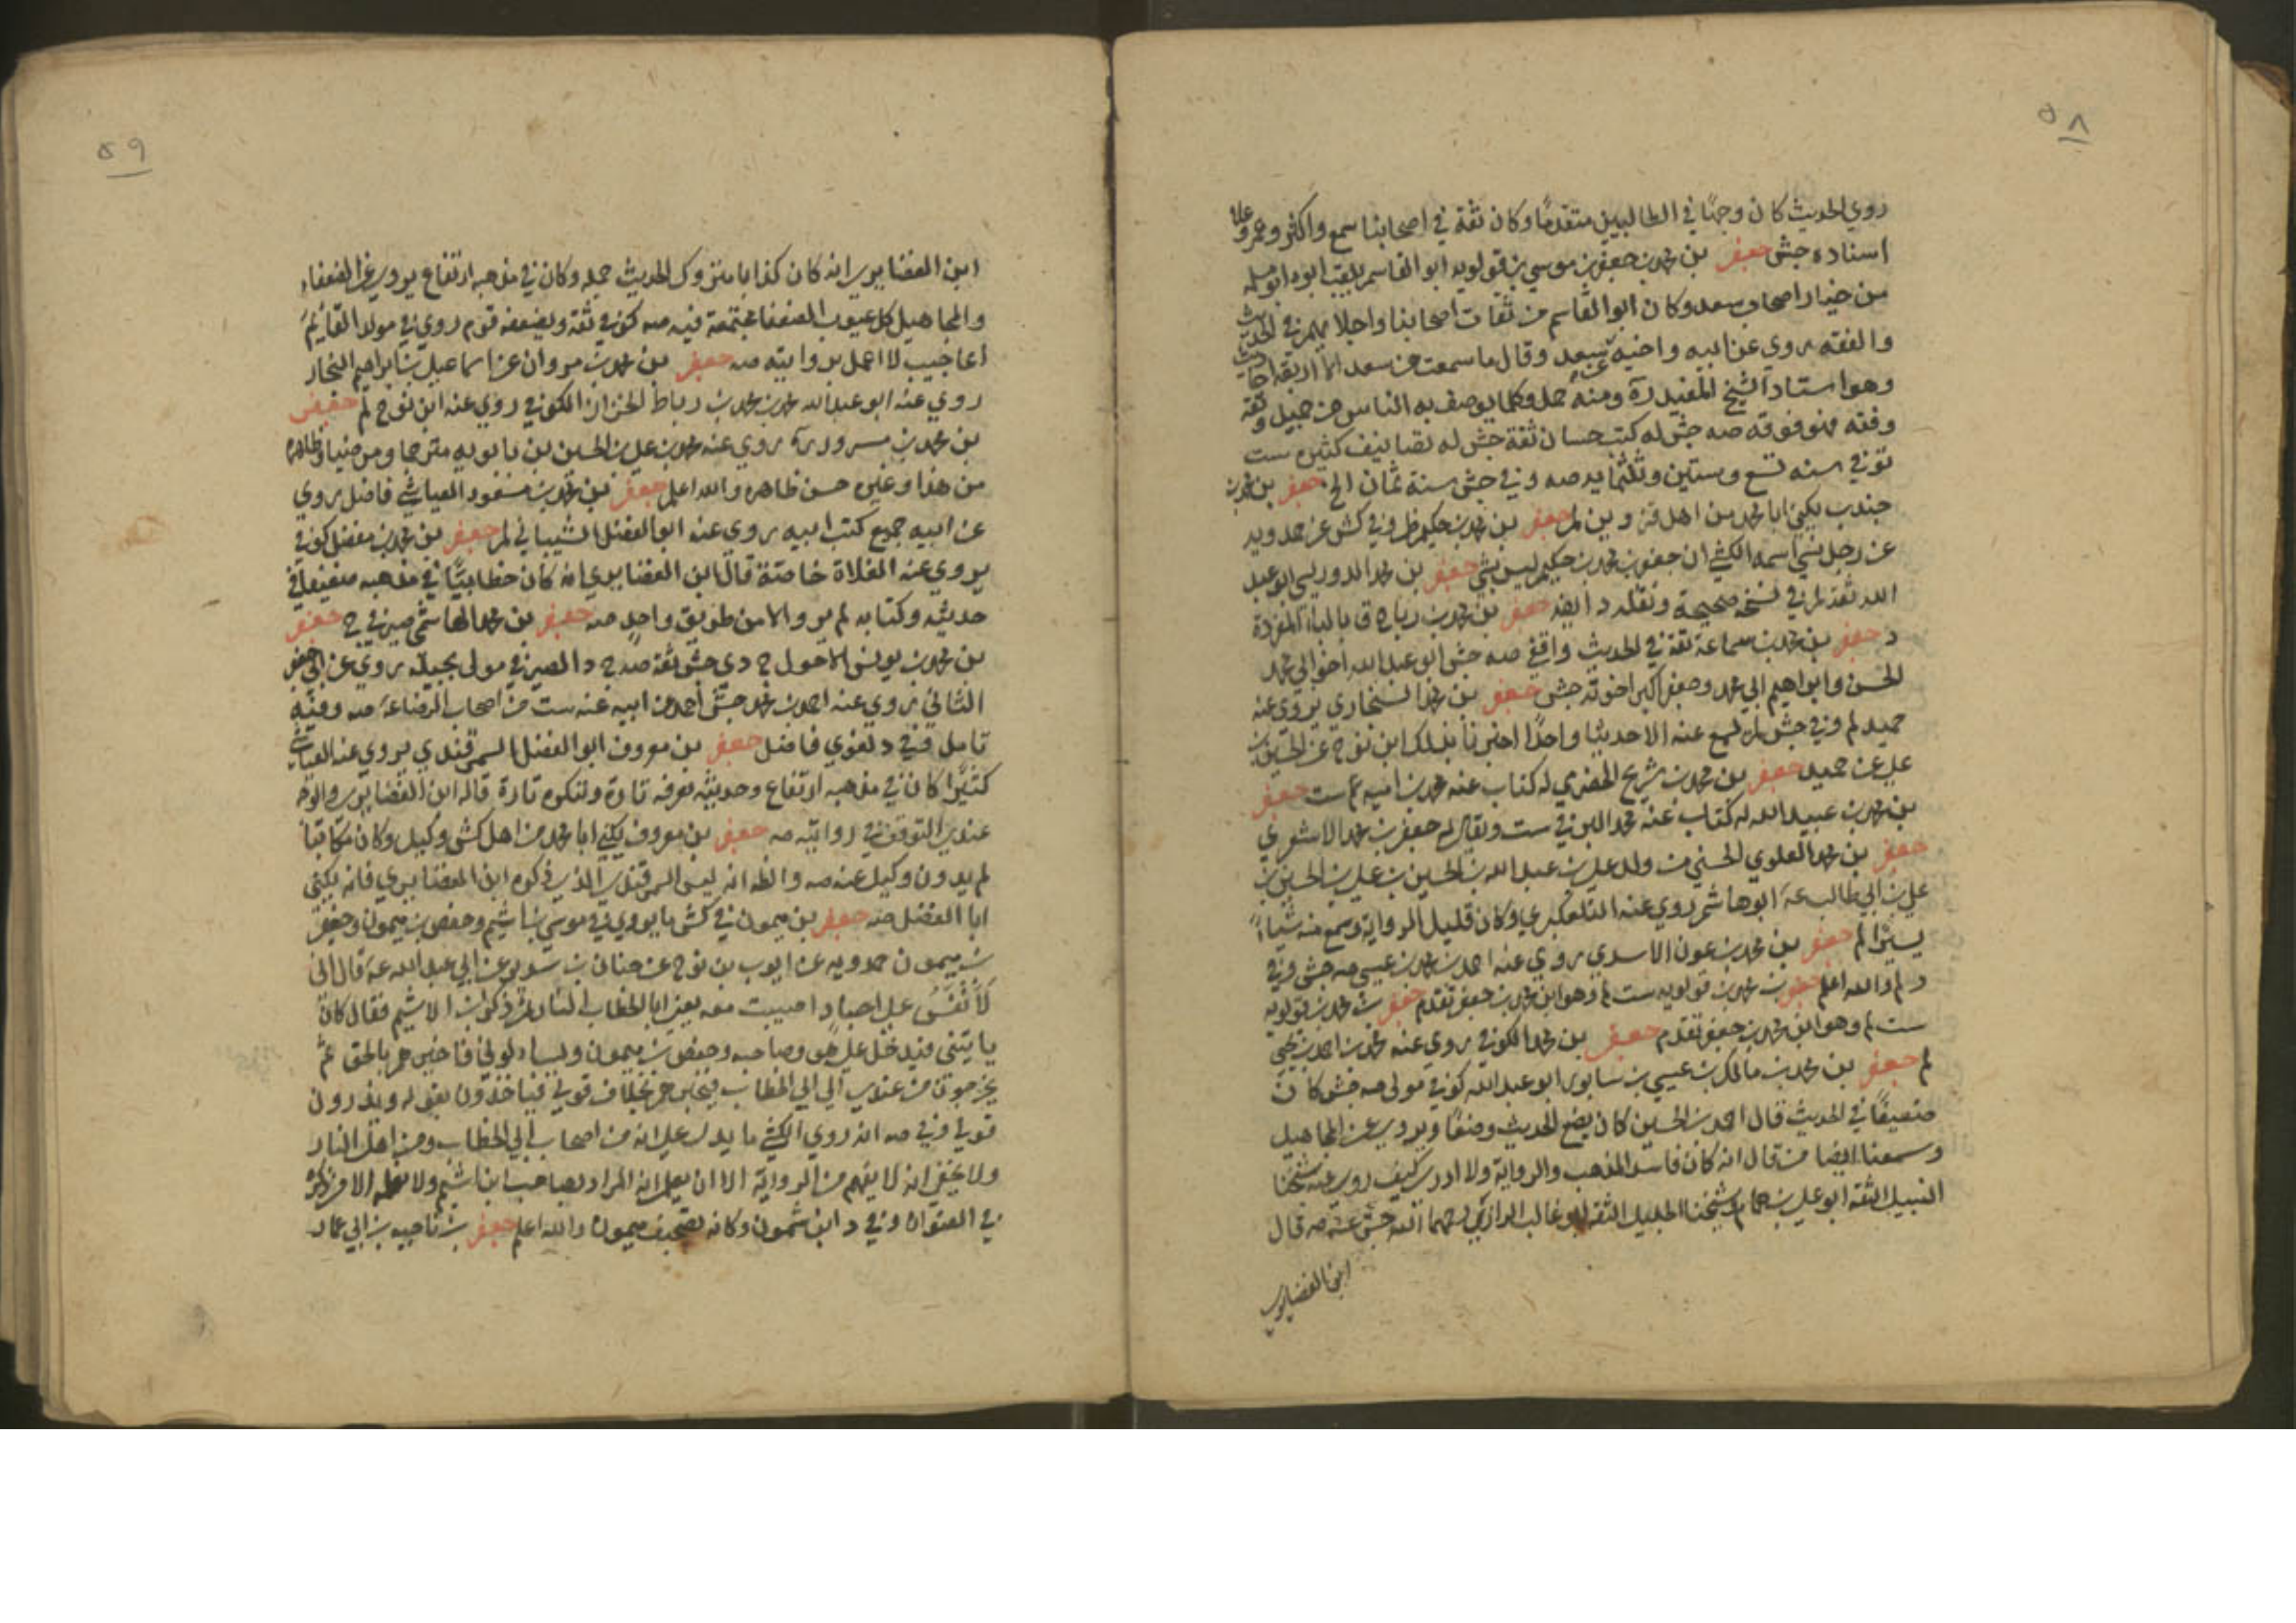 ٥٨
روي الحديث كان وجهًا في الطالبيين متقدمًا وكان ثقة في اصحابنا سمع واكثر وعمر وعلا
اسناده جش جعفر بن محمد بن جعفر بن موسى بن قولويه ابو القاسم يلقب ابوه
من خيار اصحاب سعد وكان ابو القاسم من ثقات اصحابنا واجلائهم في الحديث
والفقه روي عن ابيه واخيه عن سعد وقال ما سمعت من سعد الا اربعة احاديث
وهو استاد الشيخ المفيد ره ومنه حمل وكلما يوصف به الناس من جميل وثقة
وفقه فهو فوقه صه جش له كتب حسان ثقة جش له تصانيف كثيره ست
توفي سنه تسع وستين وثلثمايه صه وفي جش سنة ثمان الخ جعفر بن محمد بن
جندب يكنى ابا محمد من اهل جعفر بن محمد بن حكيم ظم وفي كش عن حمدويه
عن رجل نسي اسمه الكشي ان جعفر بن محمد بن حكيم ليس بشي جعفر بن محمد الدوريسي ابو عبد
الله ثقة لم في نسخه صحيحة ونقله د ايضا جعفر بن محمد بن رباح ق بالباء المفردة
د جعفر بن محمد بن سماعة ثقة في الحديث واقفي صه جش ابو عبد الله اخو ابي محمد
الحسن وابراهيم ابي محمد وجعفر اكبر اخوته جش جعفر بن محمد السنجاري يروي عنه
حميد لم وفي جش لم يسمع عنه الا حديثا واحدًا اخبرنا بذلك ابن نوح عن الحسين بن
علي عن حميد جعفر بن محمد بن شريح الحضرمي له كتاب عنه محمد بن اميه ست جعفر
بن محمد بن عبيد الله له كتاب عنه محمد البرقي ست ويقال له جعفر بن محمد الاشعري
جعفر بن محمد العلوي الحسيني من ولد علي بن عبد الله بن الحسين بن علي بن الحسين بن
علي بن ابي طالب ع ابو هاشم روي عنه التلعكبري وكان قليل الرواية وسمع منه شيئاً
يسيرًا لم جعفر بن محمد بن عون الاسدي روي عنه احمد بن محمد بن عيسى صه جش وفي
د لم والله اعلم جعفر بن محمد بن قولويه ست لم وهو ابن محمد بن جعفر تقدم جعفر بن محمد بن قولويه
ست لم وهو ابن محمد بن جعفر تقدم جعفر بن محمد الكوفي روي عنه محمد بن احمد بن يحيى
لم جعفر بن محمد بن مالك بن عيسى بن سابور ابو عبد الله كوفي مولى صه جش كان
ضعيفًا في الحديث قال احمد بن الحسين كان يضع الحديث وضعًا ويروي عن المجاهيل
وسمعنا ايضا من قال انه كان فاسد المذهب والرواية ولا ادري كيف روي عنه شيخنا
النبيل الثقة ابو علي بن همام وشيخنا الجليل الثقه ابو غالب الرازي رحمهما الله جش عنه صه قال
ابن الغضايري
٥٩
ابن الغضايري انه كان كذابا متروك الحديث جملة وكان في مذهبه ارتفاع يروي عن الضعفاء
والمجاهيل كل عيوب الضعفا مجتمعة فيه صه كوفي ثقة ويضعفه قوم روي في مولد القائم
اعاجيب لا اعمل بروايته صه جعفر بن محمد بن مروان عن اسماعيل بن ابراهيم النجار
روي عنه ابو عبد الله محمد بن محمد بن رباط الخزاز الكوفي روي عنه ابن نوح لم جعفر
بن محمد بن مسرور ره روي عنه محمد بن علي بن الحسين بن بابويه مترحما ومرضيا وظاهره
من هذا وغيره حسن ظاهره والله اعلم جعفر بن محمد بن مسعود العياشي فاضل روي
عن ابيه جميع كتب ابيه روي عنه ابو الفضل الشيباني لم جعفر بن محمد بن مفضل كوفي
يروي عنه الغلاة خاصة قال ابن الغضايري انه كان خطابيًّا في مذهبه ضعيفا في
حديثه وكتابه لم يرو الا من طريق واحد صه جعفر بن محمد الهاشمي صيرفي ج جعفر
بن محمد بن يونس الاحول ج دي جش ثقة صه ج د الصيرفي مولى بجيلة روي عن ابي جعفر
الثاني روي عنه احمد بن محمد جش احمد عن ابيه عنه ست من اصحاب الرضا ع صه وفيه
تامل وفي د لغوي فاضل جعفر بن معروف ابو الفضل السمرقندي يروي عنه العياشي
كثيرًا كان في مذهبه ارتفاع وحديثه نعرفه تارة وننكره تارة قاله ابن الغضايري والوجه
عندي التوقف في روايته صه جعفر بن معروف يكنى ابا محمد من اهل كش وكيل وكان مكاتبا
لم يد ون وكيل عنه صه والظ انه ليس السمرقندي الذي ذكره ابن الغضايري فانه يكنى
ابا الفضل صه جعفر بن ميمون في كش ما يروي في موسى بن اشيم وحفص بن ميمون وجعفر
بن ميمون حمدويه عن ايوب بن نوح عن حنان بن سدير عن ابي عبد الله ع قال اني
لأنفس على اجساد اصيبت معه يعني ابا الخطاب النار ثم ذكر ابن الاشيم فقال كان
ياتيني فيدخل علي هو وصاحبه وحفص بن ميمون ويسالوني فاخبرهم بالحق ثم
يخرجون من عندي الي ابي الخطاب فيخبرهم بخلاف قولي فياخذون بقوله ويذرون
قولي وفي صه انه روي الكشي ما يدل علي انه من اصحاب ابي الخطاب ومن اهل النار
ولا يخفى انه لا يفهم من الرواية الا ان يعلم ان المراد بصاحب ابن اشيم ولا الا من ذكره
في العنوان وفي د ابن شمون وكانه تصحيف ميمون والله اعلم جعفر بن ناجيه بن ابي عمار